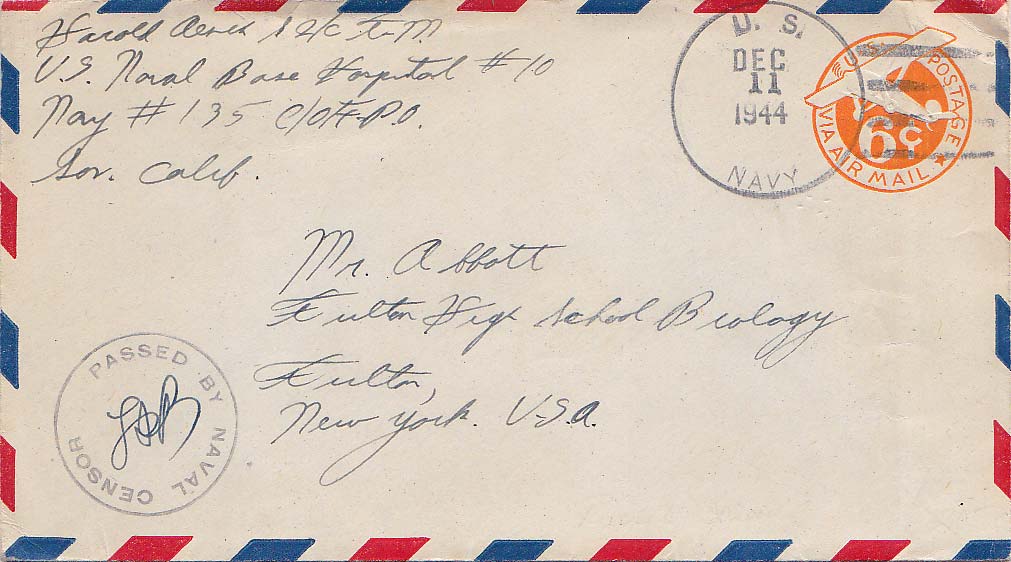 Harold S 2/c
U.S. Naval Base Hospital # 10
Navy # 135 C/O F.P.O.
San. Calif.
U. S.
DEC
11
1944
NAVY
U.S. POSTAGE
6¢
VIA AIR MAIL
Mr. Abbott
Fulton High School Biology
Fulton,
New York. U.S.A.
PASSED BY NAVAL CENSOR